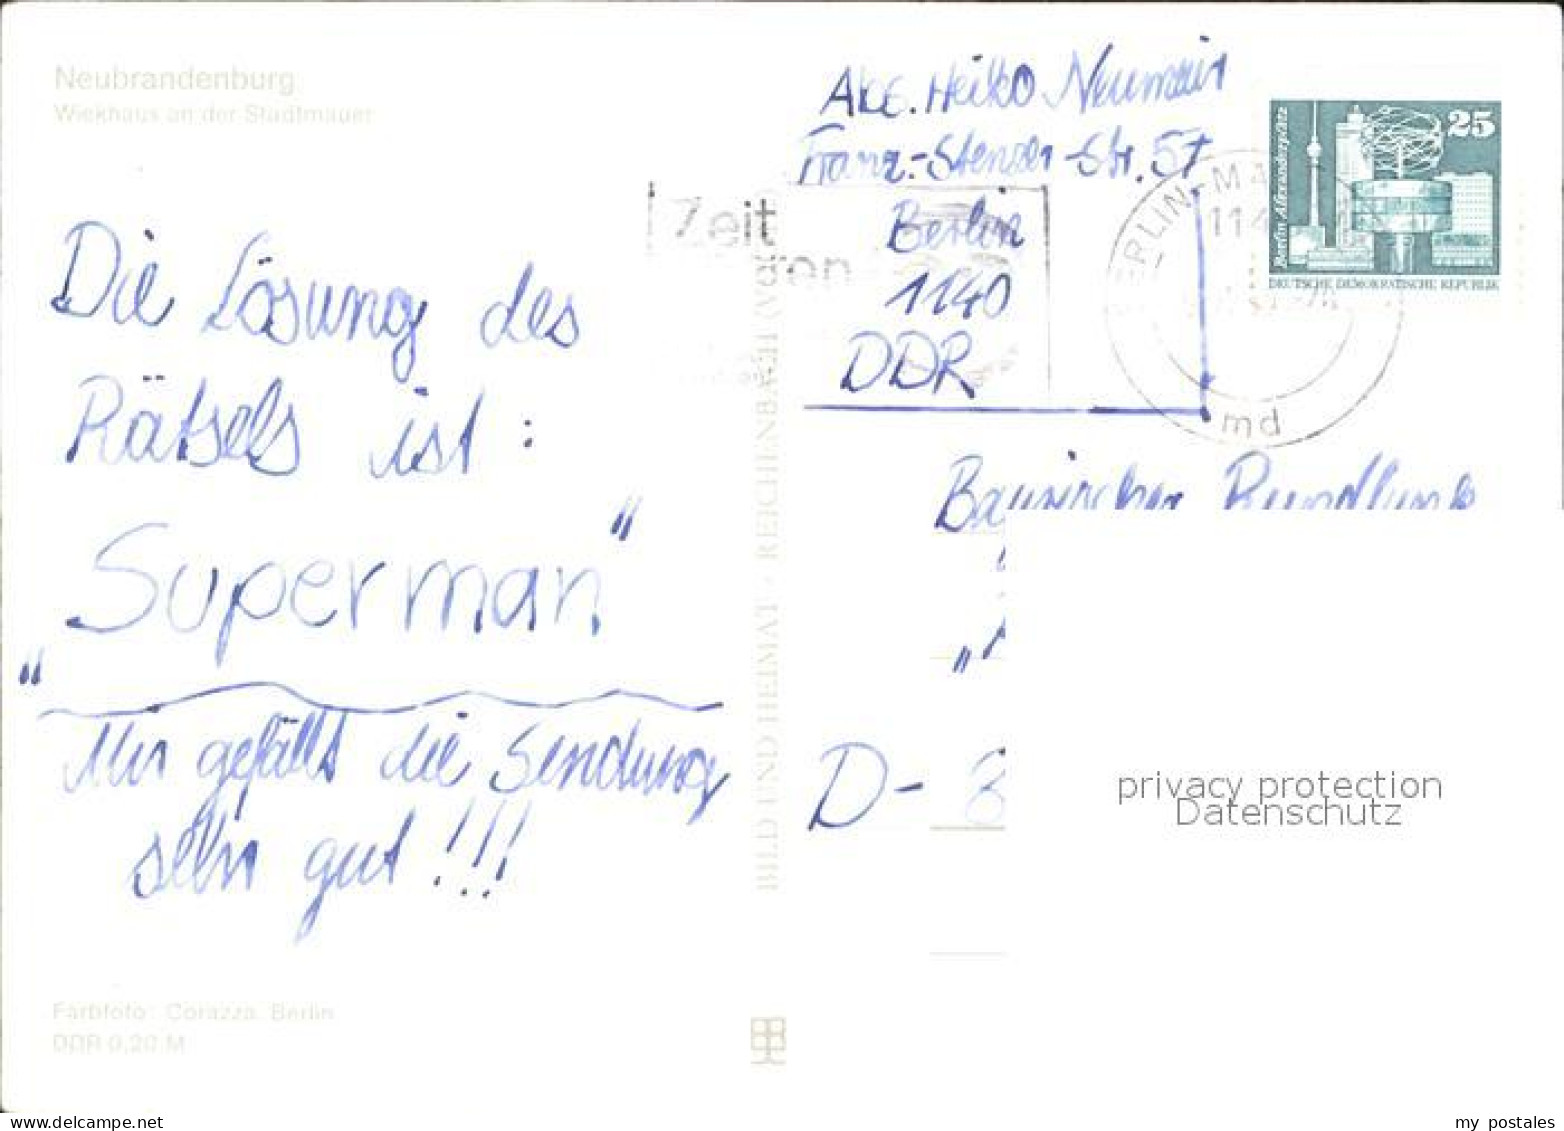 Neubrandenburg
Wiekhaus an der Stadtmauer
Die Lösung des
Rätsels ist :
"Superman"
Mir gefällt die Sendung
sehr gut !!!
Farbfoto: Corazza, Berlin
DDR 0,20 M
BILD UND HEIMAT · REICHENBACH (VOGTL
Zeit
Abs. Heiko Neumair
Franz-Stenzer-Str. 57
Berlin
1140
DDR
25
Berlin Alexanderplatz
DEUTSCHE DEMOKRATISCHE REPUBLIK
BERLIN-MA
114
md
Bayrischer Rundfunk
D- 8
privacy protection
Datenschutz
www.delcampe.net
my postales